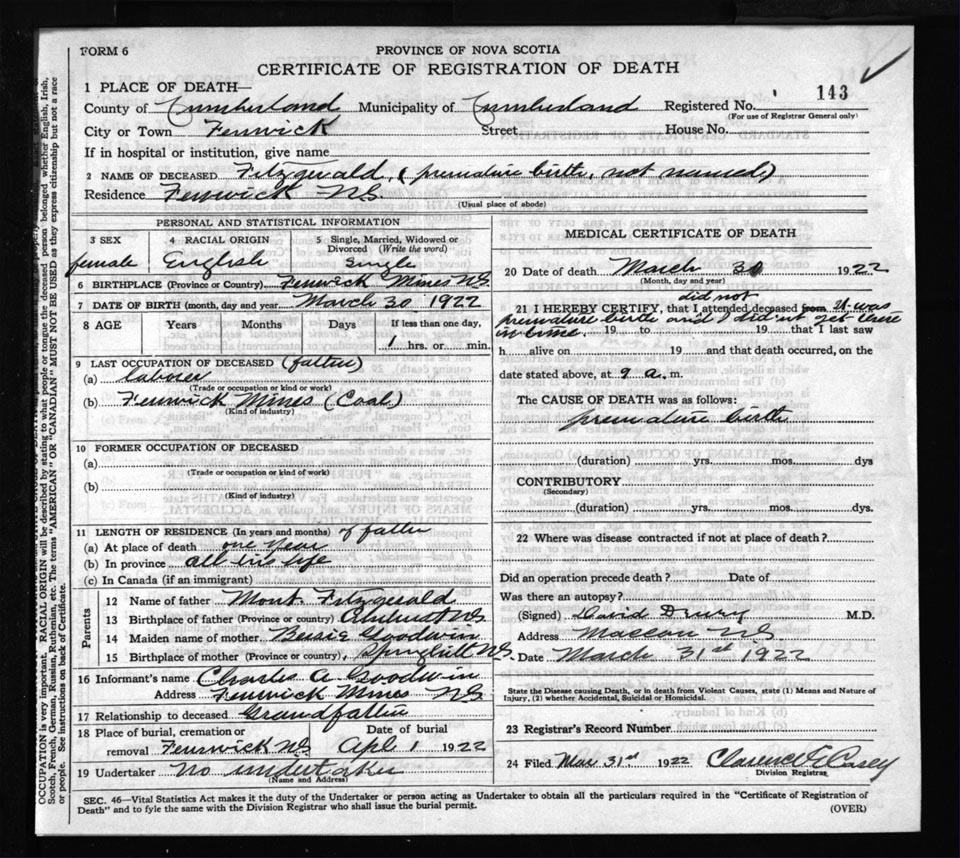 FORM 6
PROVINCE OF NOVA SCOTIA
CERTIFICATE OF REGISTRATION OF DEATH
1 PLACE OF DEATH—
County of Cumberland Municipality of Cumberland Registered No. 143
(For use of Registrar General only)
City or Town Fenwick Street House No.
If in hospital or institution, give name
2 NAME OF DECEASED Fitzgerald, (premature birth, not named)
Residence Fenwick N.S.
(Usual place of abode)
PERSONAL AND STATISTICAL INFORMATION
3 SEX 4 RACIAL ORIGIN 5 Single, Married, Widowed or Divorced (Write the word)
female English Single
6 BIRTHPLACE (Province or Country) Fenwick Mines N.S.
7 DATE OF BIRTH (month, day and year) March 30 1922
8 AGE Years Months Days If less than one day,
1 hrs. or min.
9 LAST OCCUPATION OF DECEASED (father)
(a) laborer
(Trade or occupation or kind or work)
(b) Fenwick Mines (Coal)
(Kind of industry)
10 FORMER OCCUPATION OF DECEASED
(a)
(Trade or occupation or kind of work)
(b)
(Kind of industry)
11 LENGTH OF RESIDENCE (In years and months) of father
(a) At place of death one year
(b) In province all his life
(c) In Canada (if an immigrant)
Parents
12 Name of father Mont. Fitzgerald
13 Birthplace of father (Province or country) Amherst N.S.
14 Maiden name of mother Bessie Goodwin
15 Birthplace of mother (Province or country), Springhill N.S.
16 Informant's name Charles A Goodwin
Address Fenwick Mines N.S.
17 Relationship to deceased Grandfather
18 Place of burial, cremation or removal Fenwick N.S. Date of burial Apl 1 1922
19 Undertaker No undertaker
(Name and Address)
MEDICAL CERTIFICATE OF DEATH
20 Date of death March 30 1922
(Month, day and year)
did not
21 I HEREBY CERTIFY, that I attended deceased from It was
premature birth and I did not get there
in time 19 to 19 that I last saw
h alive on 19 and that death occurred, on the
date stated above, at 9 a. m.
The CAUSE OF DEATH was as follows:
premature birth
(duration) yrs. mos. dys
CONTRIBUTORY
(Secondary)
(duration) yrs. mos. dys.
22 Where was disease contracted if not at place of death?
Did an operation precede death? Date of
Was there an autopsy?
(Signed) David Drury M.D.
Address Maccan N.S.
Date March 31st 1922
State the Disease causing Death, or in death from Violent Causes, state (1) Means and Nature of Injury, (2) whether Accidental, Suicidal or Homicidal.
23 Registrar's Record Number
24 Filed Mar 31st 1922 Clarence E Casey
Division Registrar
SEC. 46—Vital Statistics Act makes it the duty of the Undertaker or person acting as Undertaker to obtain all the particulars required in the "Certificate of Registration of
Death" and to fyle the same with the Division Registrar who shall issue the burial permit.
(OVER)
OCCUPATION is very important. RACIAL ORIGIN will be described by stating to what people or tongue the deceased person belonged, whether English, Irish,
Scotch, French, German, Russian, Ruthenian, etc. The terms "AMERICAN" OR "CANADIAN" MUST NOT BE USED as they express citizenship but not a race
or people. See instructions on back of Certificate.